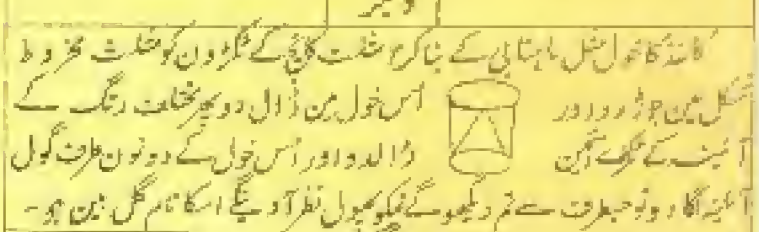 کاغذ کا خول مثل ماہتابی کے بنا کر مثلث کانچ کے ٹکڑون کو مثلث مخروط
شکل مین جوڑ دو اور اس خول مین ڈال دو پھر مختلف رنگ کے
آئینہ کے ٹکڑے اسمین ڈالدو اور اس خول کے دونون طرف گول
آئینہ لگا دو تو جسطرف سے تم دیکھو گے تمکو پھول نظر آوینگے اسکا نام گل بین ہو۔